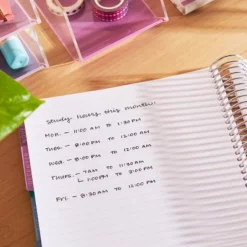 Study hours this month:
Mon. - 11:00 AM to 1:30 PM
Tues. - 8:00 PM to 12:00 AM
Wed. - 8:00 PM to 12:00 AM
Thurs. - 7AM to 11:30AM
↳ 1:00PM to 8:00 PM
Fri. - 8:30AM to 12:00 PM